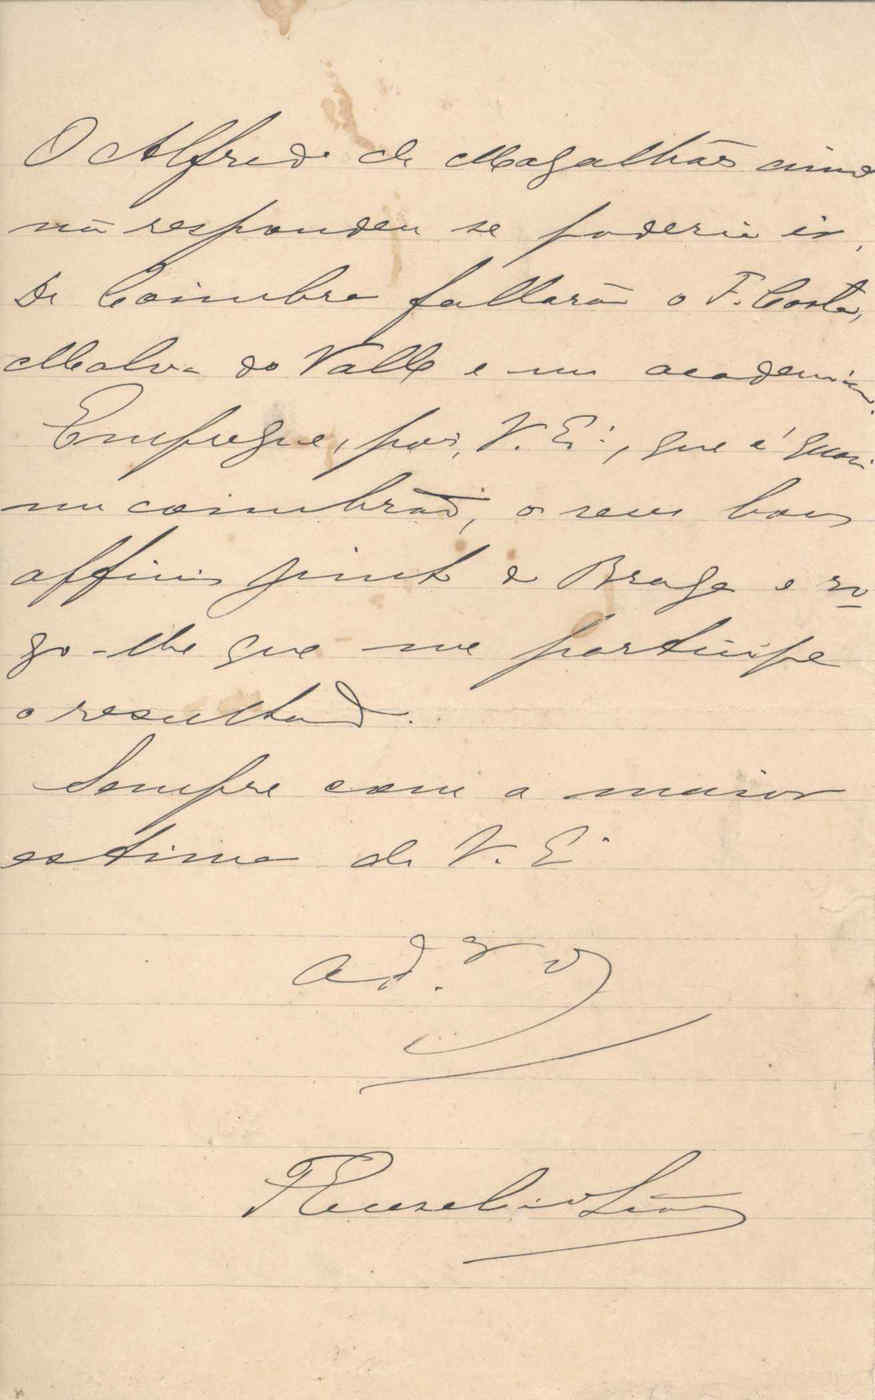 O Alfredo de Magalhães ainda
não respondeu se poderia ir.
De Coimbra fallarão o F. Costa,
Malva do Valle e um academico.
Empregue, pois, V. Ex.ª, que é quasi
um coimbrão, os seus bons
officios junto do Braga e ro-
go-lhe que me participe
o resultado.
Sempre com a maior
estima de V. Ex.ª
ad.or
F Eusebio Leão